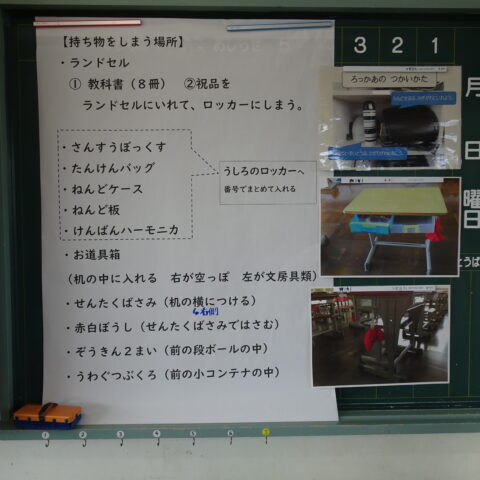 【持ち物をしまう場所】
・ランドセル
① 教科書(8冊) ②祝品を
ランドセルにいれて、ロッカーにしまう。
・さんすうぼっくす
・たんけんバッグ
・ねんどケース
・ねんど板
・けんばんハーモニカ
うしろのロッカーへ
番号でまとめて入れる
・お道具箱
(机の中に入れる 右が空っぽ 左が文房具類)
・せんたくばさみ(机の横につける)
↳右側
・赤白ぼうし(せんたくばさみではさむ)
・ぞうきん2まい(前の段ボールの中)
・うわぐつぶくろ(前の小コンテナの中)
ろっかあの つかいかた
3 2 1
月
日
曜
日
とうば
① ② ③ ④ ⑤ ⑥ ⑦